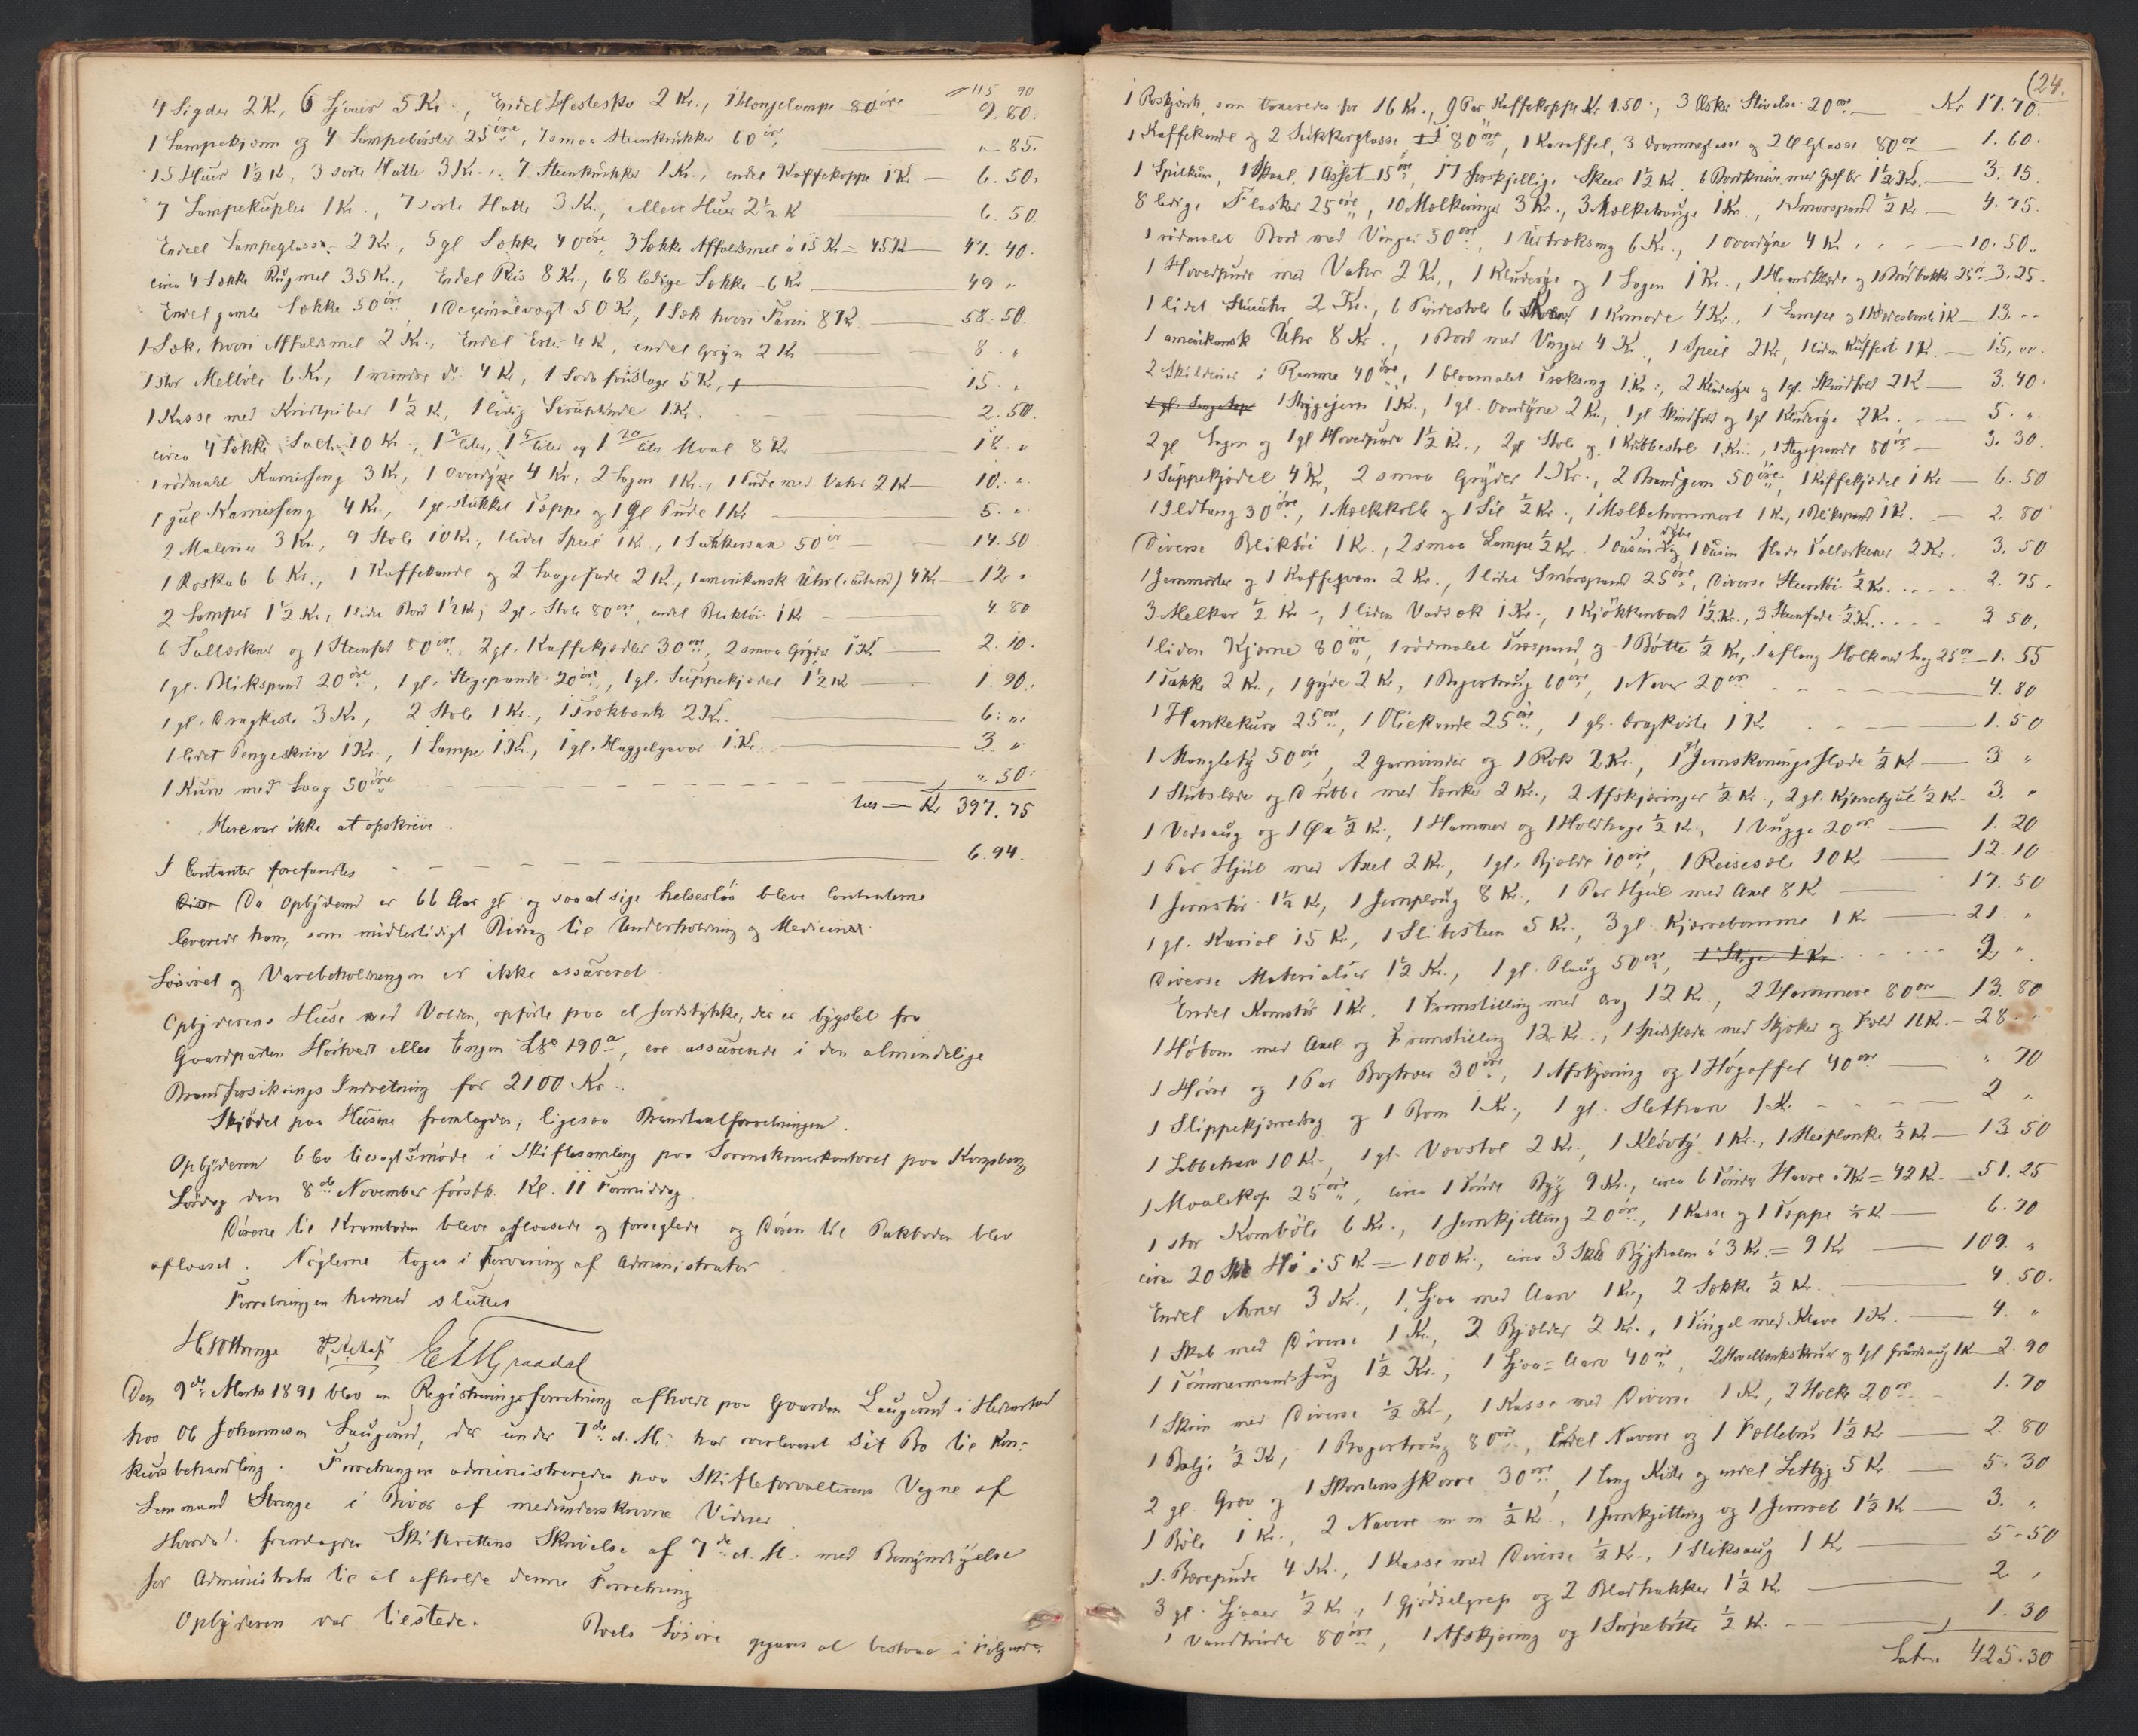 115 90
4 Sigder 2 Kr., 6 Ljoner 5 Kr., Endel Hestesko 2 Kr., 1 Hengelampe 80 öre 9.80.
1 Lampekjom og 4 Lampebörster 25 öre, 7 smaa Steenkrukker 60 ör — " 85.
15 Huer 1½ K, 3 sorte Hatte 3 Kr., 7 Steenkrukker 1 Kr., endel Kaffekoppe 1 K. — 6.50.
7 Lampekupler 1 Kr., 7 sorte Hatte 3 Kr., elleve Huer 2½ K 6.50.
Endeel Lampeglasse 2 Kr., 5 gl Sække 40 öre, 3 Sække Affaldsmel à 15 Kr = 45 K — 47.40.
circa 4 Sække Rugmel 35 Kr., Endel Ris 8 Kr., 68 ledige Sække - 6 Kr — 49 "
Endel gamle Sække 50 öre, 1 Decimalvægt 50 Kr., 1 Sæk hvori Farin 8 K — 58.50.
1 Sæk, hvori Affaldsmel 2 Kr., Endel Erter 4 K, endel Gryn 2 K — 8. "
1 stor Melböle 6 Kr, 1 mindre do 4 Kr, 1 Soda fustage 5 Kr, — 15. "
1 Kasse med Kridtpiber 1½ K, 1 ledig Siruptönde 1 Kr. 2.50.
circa 4 Sække Salt 10 Kr., 1 2/liter, 1 5/liter og 1 20/liter Maal 8 Kr — 18. "
1 rödmalt Kanniseng 3 Kr, 1 Overdyne 4 Kr, 2 Lagen 1 Kr., 1 Pude med Vahr 2 K — 10. "
1 gul Kanniseng 4 Kr., 1 gl. stukket Tæppe og 1 gl Pude 1 Kr — 5. "
2 Malerier 3 Kr., 9 Stole 10 Kr., 1 lidet Speil 1 K, 1 Sukkersax 50 ör — 14.50
1 Roskab 6 Kr., 1 Kaffekande og 2 Laagefade 2 K., 1 amerikansk Uhr (i ustand) 4 K — 12 "
2 Lamper 1½ K, 1 lide Bord 1½ K, 2 gl. Stole 80 öre, endel Bliktöi 1 K — 4.80
6 Tallerkener og 1 Steenfad 80 öre, 2 gl. Kaffekjedler 30 öre, 2 smaa Gryder 1 K — 2.10.
1 gl. Blikspand 20 öre, 1 gl. Stegepande 20 öre, 1 gl. Suppekjedel 1½ K — 1.90.
1 gl. Dragkiste 3 Kr., 2 Stole 1 Kr., 1 Trækbænk 2 Kr. 6. "
1 lidet Pengeskrin 1 Kr., 1 Lampe 1 K., 1 gl. Haggelgevær 1 K. 3. "
1 Kurv med Laag 50 öre — ". 50.
Lres — Kr 397.75
Mere var ikke at opskrive.
I Contanter forefandtes — 6.94.
Da Opbyderen er 66 Aar gl og saa at sige helselös bleve Contanterne
leverede ham, som midlertidigt Bidrag til Underholdning og Medicin.
Lösöret og Varebeholdningen er ikke assureret.
Opbyderens Huse ved Volden, opförte paa et Jordstykke, der er bygslet fra
Gaardparten Hostvedt eller Engen Lb. 190 a, ere assurerede i den almindelige
Brandforsikrings Indretning for 2100 Kr.
Skjödet paa Husene fremlagdes; ligesaa Brandtaxtforretningen.
Opbyderen blev tilsagt at möde i Skiftesamling paa Sorenskriverkontoret paa Kongsberg
Lördag den 8de November först k. Kl. 11 Formiddag.
Dörene til Kramboden bleve aflaasede og forseglede og Dören til Pakboden blev
aflaaset. Nöglerne toges i Forvaring af Administrator.
Forretningen hermed sluttet
Den 9de Marts 1891 blev en Registreringsforretning afholdt paa Gaarden Laugerud i Hedenstad
hos Ole Johannesen Laugerud, der under 7de d. M. har overleveret sit Bo til Kon-
kursbehandling. Forretningen administreredes paa Skifteforvalterens Vegne af
Lensmand Strenge i Bivær af medunderskrevne Vidner
Hvorda! fremlagdes Skifterettens Skrivelse af 7de d. M. med Bemyndigelse
for Administrator til at afholde denne Forretning
Opbyderen var tilstede. Boets Lösöre opgaves at bestaa i Fölgende:
(24.
1 Roskjænk, som taxeredes for 16 Kr., 9 Par Kaffekoppe Kr 1.50., 3 Æsker Stivelse 20 ör — Kr 17.70.
1 Kaffekande og 2 Sukkerglasse 80 öre, 1 Karaffel, 3 Drammeglasse og 2 Ölglasse 80 ör — 1.60.
1 Spilkum, 1 Skaal, 1 Asjet 15 öre, 17 forskjellige Skeer 1½ Kr, 6 Bordknive med Gafler 1½ Kr. — 3.15.
8 ledige Flasker 25 öre, 10 Mælkeringer 3 Kr., 3 Mælketrauge 1 Kr., 1 Smörspand ½ Kr — 4.75.
1 rödmalet Bord med Vinger 50 öre, 1 Udtræksseng 6 Kr., 1 Overdyne 4 Kr. — 10.50.
1 Hovedpude med Vahr 2 Kr., 1 Kluderye og 1 Lagen 1 Kr., 1 Haandklæde og 1 Brödbakke 25 ör 3.25.
1 lidet Stueuhr 2 Kr., 6 Pindestole 6 Kr, 1 Komode 4 Kr., 1 Lampe og 1 1 K — 13. "
1 amerikansk Uhr 8 Kr., 1 Bord med Vinger 4 Kr., 1 Speil 2 Kr, 1 liden Kuffert 1 K. — 15. "
2 Skilderier i Ramme 40 öre, 1 blaamalet Træksseng 1 Kr., 2 Kluderyer og 1 gl. Skindfeld 2 K — 3.40.
1 Strygejern 1 Kr., 1 gl. Overdyne 2 Kr., 1 gl Skindfeld og 1 gl Kluderye 2 Kr. — 5. "
2 gl Lagen og 1 gl Hovedpude 1½ Kr., 2 gl Stole og 1 Kubbestol 1 Kr., 1 Stegepande 80 ör — 3.30.
1 Suppekjedel 4 Kr, 2 smaa Gryder 1 Kr., 2 Brandjern 50 öre, 1 Kaffekjedel 1 Kr — 6.50
1 Ildtang 30 öre, 1 Mælkekolle og 1 Sil ½ Kr., 1 Mælketrommert 1 Kr, 1 Blikspand 1 K. — 2.80
Diverse Bliktöi 1 Kr., 2 smaa Lampe ½ Kr. 1 Dusin dybe og 1 Dusin flade Tallerkener 2 Kr. 3.50
1 Jernmorter og 1 Kaffekværn 2 Kr., 1 lidet Smörspand 25 öre, Diverse Steentöi ½ Kr. 2.75.
3 Melkar ½ Kr., 1 liden Vadsæk 1 Kr., 1 Kjökkenbord 1½ Kr., 3 Steenfade ½ K. 3 50.
1 liden Kjærne 80 öre, 1 rödmalet Træspand og 1 Bötte ½ Kr, 1 aflang Holk med Laag 25 ör 1.55
1 Takke 2 Kr., 1 Gryde 2 Kr., 1 Bagertraug 60 öre, 1 Naver 20 öre — 4.80
1 Hankekurv 25 öre, 1 Oliekande 25 öre, 1 gl. Dragkiste 1 K — 1.50
1 Mangletöj 50 öre, 2 Garnvinder og 1 Rok 2 Kr., 1 gl Jernskoningsslæde ½ K — 3 "
1 Stutslæde og Drubbe med Lænker 2 Kr., 2 Afskjæringer ½ Kr., 2 gl. Kjærrehjul ½ K. 3. "
1 Vedsaug og 1 Öx ½ Kr., 1 Hammer og 1 Holdhage ½ Kr., 1 Vugge 20 ör — 1.20
1 Par Hjul med Axel 2 Kr., 1 gl. Bjælde 10 öre, 1 Reisesæle 10 K — 12.10
1 Jernstör 1½ K, 1 Jernploug 8 Kr., 1 Par Hjul med Axel 8 K — 17.50
1 gl. Kariol 15 Kr., 1 Slibesteen 5 Kr., 3 gl. Kjærrebomme 1 K — 21. "
Diverse Materialier 1½ Kr., 1 gl. Ploug 50 öre, 1 Stige 1 Kr 2 "
Endel Kornstör 1 Kr. 1 Fremstilling med Drag 12 Kr., 2 Hammere 80 öre — 13.80
1 Höbom med Axel og Fremstilling 12 Kr., 1 Spidsslæde med Skjæker og Feld 16 Kr. — 28. "
1 og 1 Par Boghver 30 öre, 1 Afskjæring og 1 Högaffel 40 ör — " 70
1 Slippekjærredrag og 1 Bom 1 Kr., 1 gl. Slethærv 1 K. — 2 "
1 Labbeharv 10 Kr., 1 gl. Vævstol 2 Kr., 1 Klövtöj 1 Kr., 1 Meiplanke ½ K — 13 50
1 Maalekop 25 öre, circa 1 Tönde Byg 9 Kr., circa 6 Tönder Havre à 7 K = 42 K. — 51.25
1 stor Kornböle 6 Kr., 1 Jernkjetting 20 öre, 1 Kasse og 1 Tæppe ½ K — 6.70
circa 20 Skd Hö à 5 K = 100 Kr., circa 3 Skd Byghalm à 3 Kr. = 9 Kr — 109. "
Endel Avner 3 Kr., 1 Ljaa med Aarv 1 Kr, 2 Sække ½ K. — 4.50.
1 Skab med Diverse 1 Kr., 2 Bjælder 2 Kr., 1 Tingel med Klave 1 Kr. — 4. "
1 Tömmermandssaug 1½ Kr., 1 Ljaa = Aarv 40 öre, 2 Hövelbænkskruer og 1 gl Grindsaug 1 K — 2.90
1 Skrin med Diverse ½ K., 1 Kasse med Diverse 1 K, 2 Holke 20 ör — 1.70
1 Balje ½ K, 1 Bagertraug 80 öre, Endel Navere og 1 Fellebor 1½ K — 2.80
2 gl. Grev og 1 30 öre, 1 lang Kiste og endel Letbyg 5 Kr. — 5.30
1 Böle 1 Kr., 2 Navere m m ½ K., 1 Jernkjetting og 1 Jernvet 1½ K — 3. "
1 Börepude 4 Kr., 1 Kasse med Diverse ½ Kr., 1 Stiksaug 1 K — 5.50
3 gl. Ljaaer ½ K, 1 Gjödselgrep og 2 Bladhakker 1½ K — 2 "
1 Vandtönde 80 öre, 1 Afskjæring og 1 Sörpebötte ½ K. — 1.30
Latus 425.30